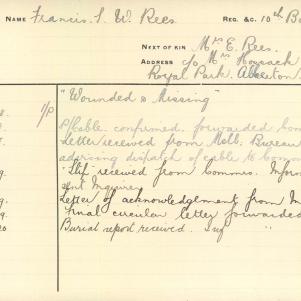 NAME Francis. S. W. Rees. REG. &C. 10th Ba
NEXT OF KIN Mrs E. Rees.
ADDRESS c/o Mrs Hossack
Royal Park. Alberton.
8. 1/P "Wounded & Missing"
P/Cable. confirmed, forwarded
Letter received from Melb. Bureau
advising dispatch of cable to
"Slip" received from Commns. Inform
ent Inquirer
9. Letter of acknowledgement from
9. Final circular letter forwarded
20 Burial report received.